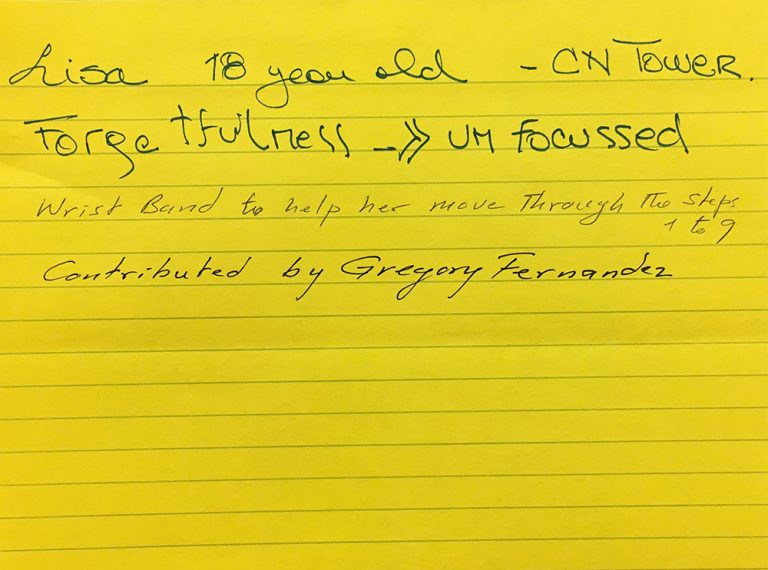 Lisa 18 year old - CN Tower.
Forgetfulness -->> un focussed
Wrist Band to help her move Through The steps
1 to 9
Contributed by Gregory Fernandez